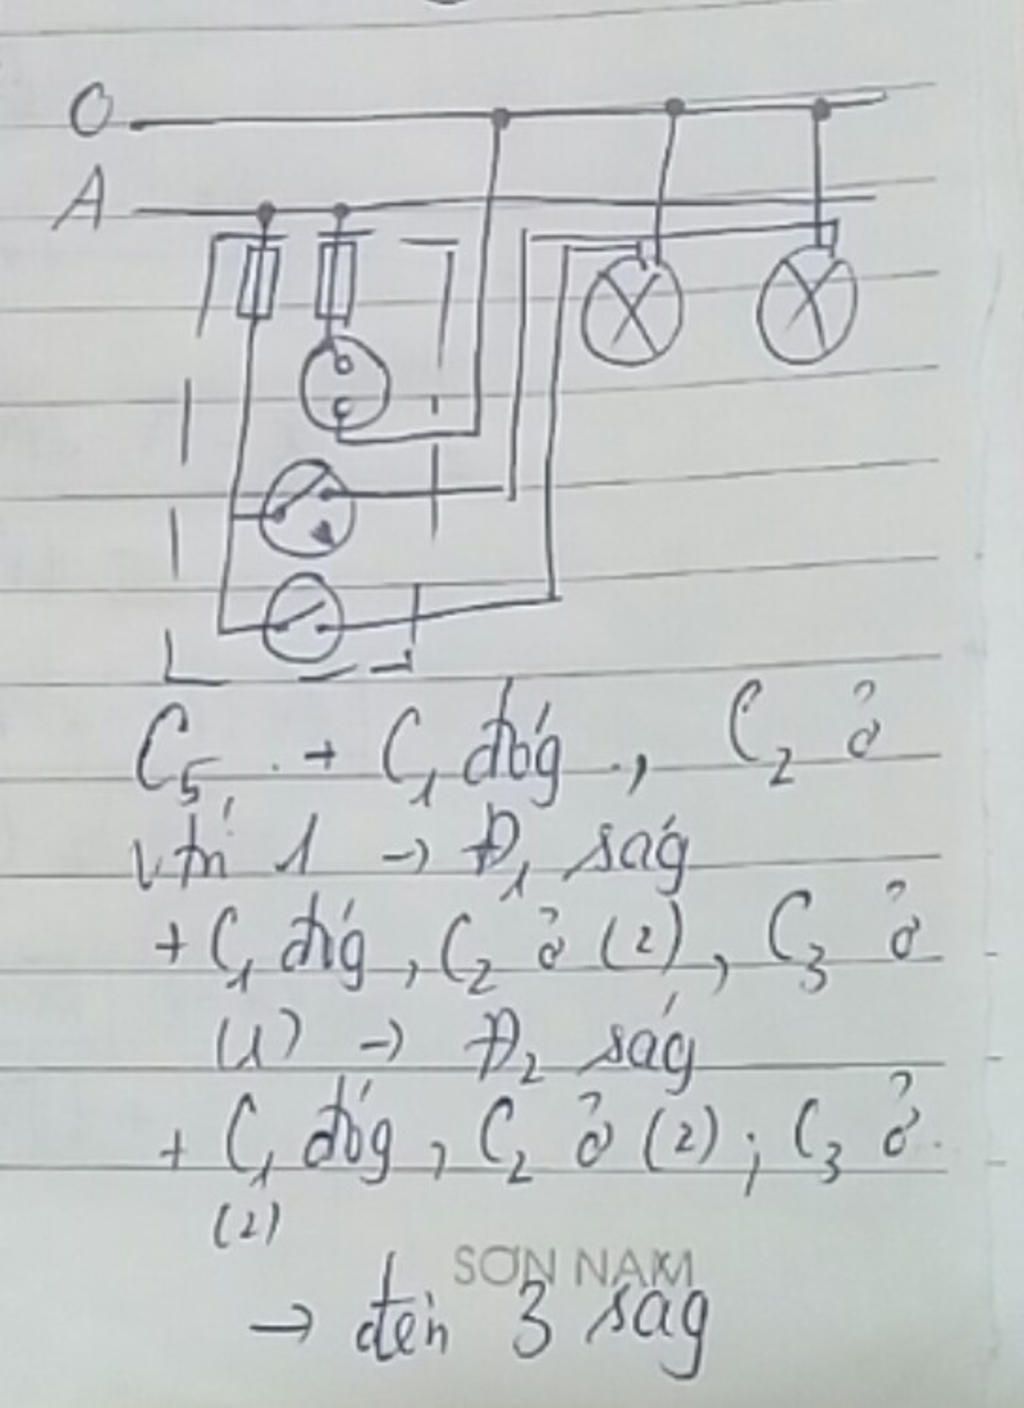 O
A
C5 + C1 đóg, C2 ở
vtrí 1 → Đ1 ság
+ C1 đóg, C2 ở (2), C3 ở
(1) → Đ2 ság
+ C1 đóg, C2 ở (2); C3 ở
(2)
SƠN NAM
→ đèn 3 ság